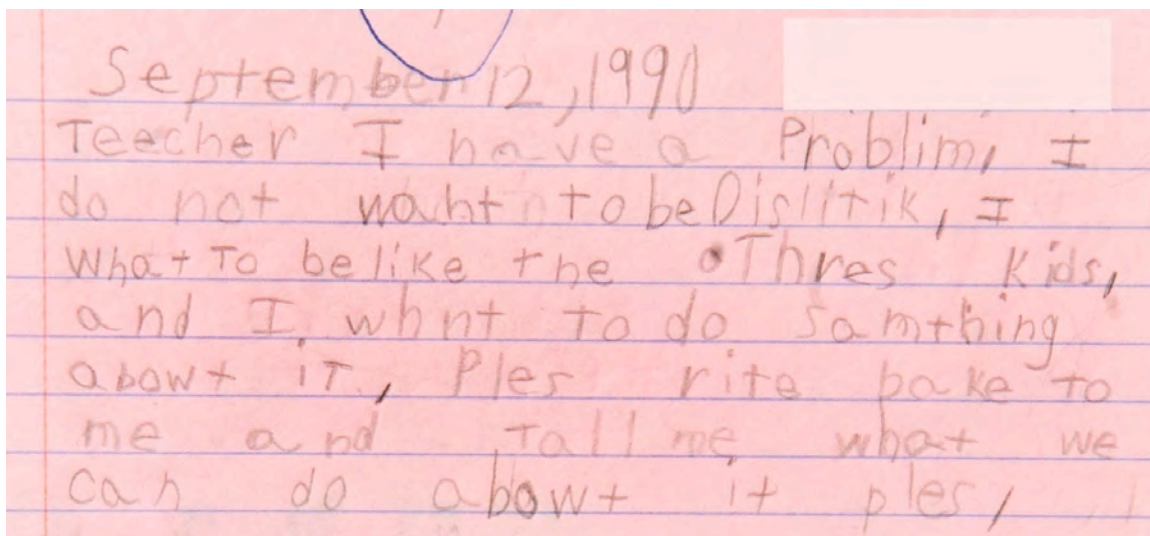 September 12, 1990
Teecher I have a Problim, I
do not waht to be Dislitik, I
What To be like the oThres Kids,
and I whnt to do samthing
abowt iT, Ples rite bake to
me and Tall me what we
can do abowt it ples,